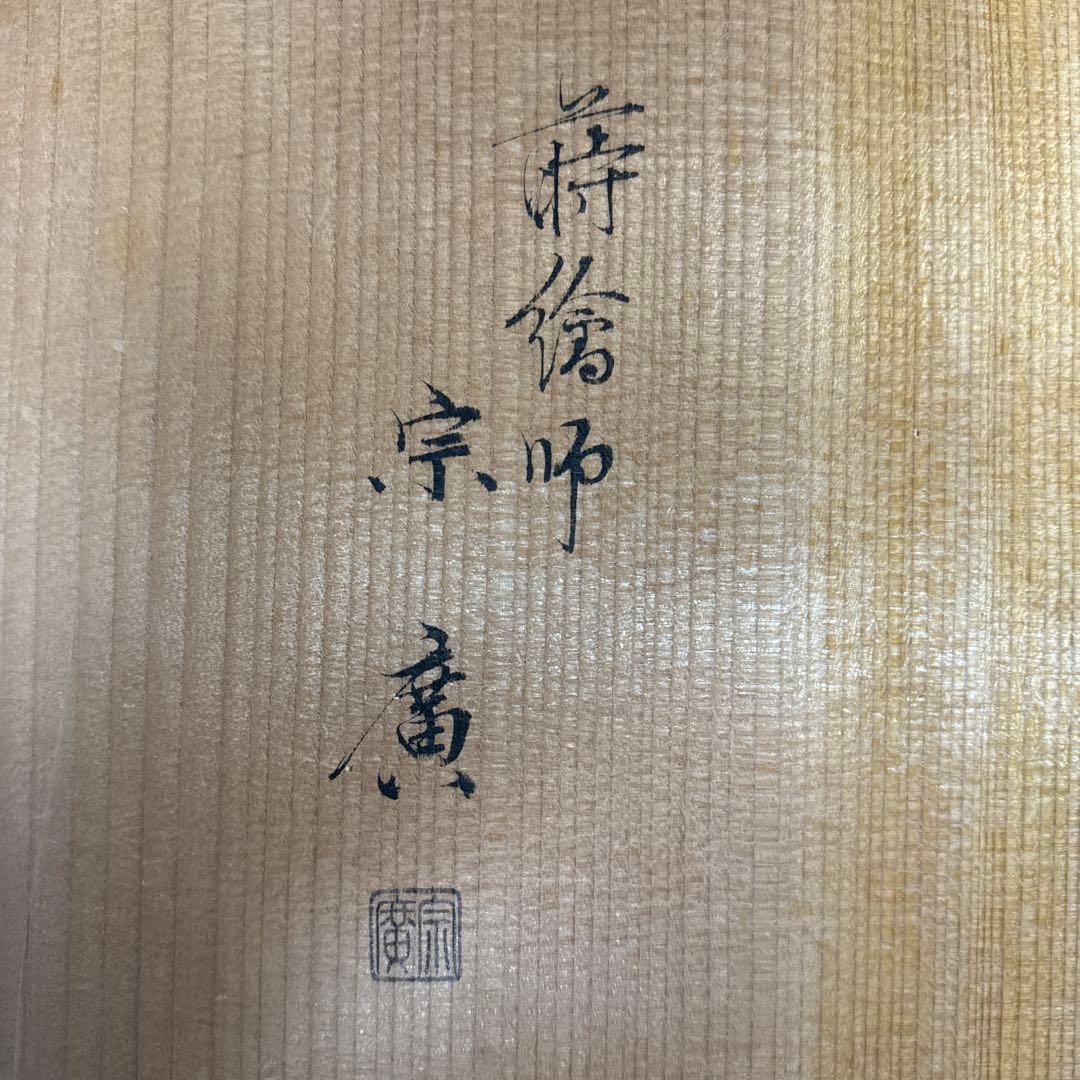 蒔繪師
宗廣
宗廣